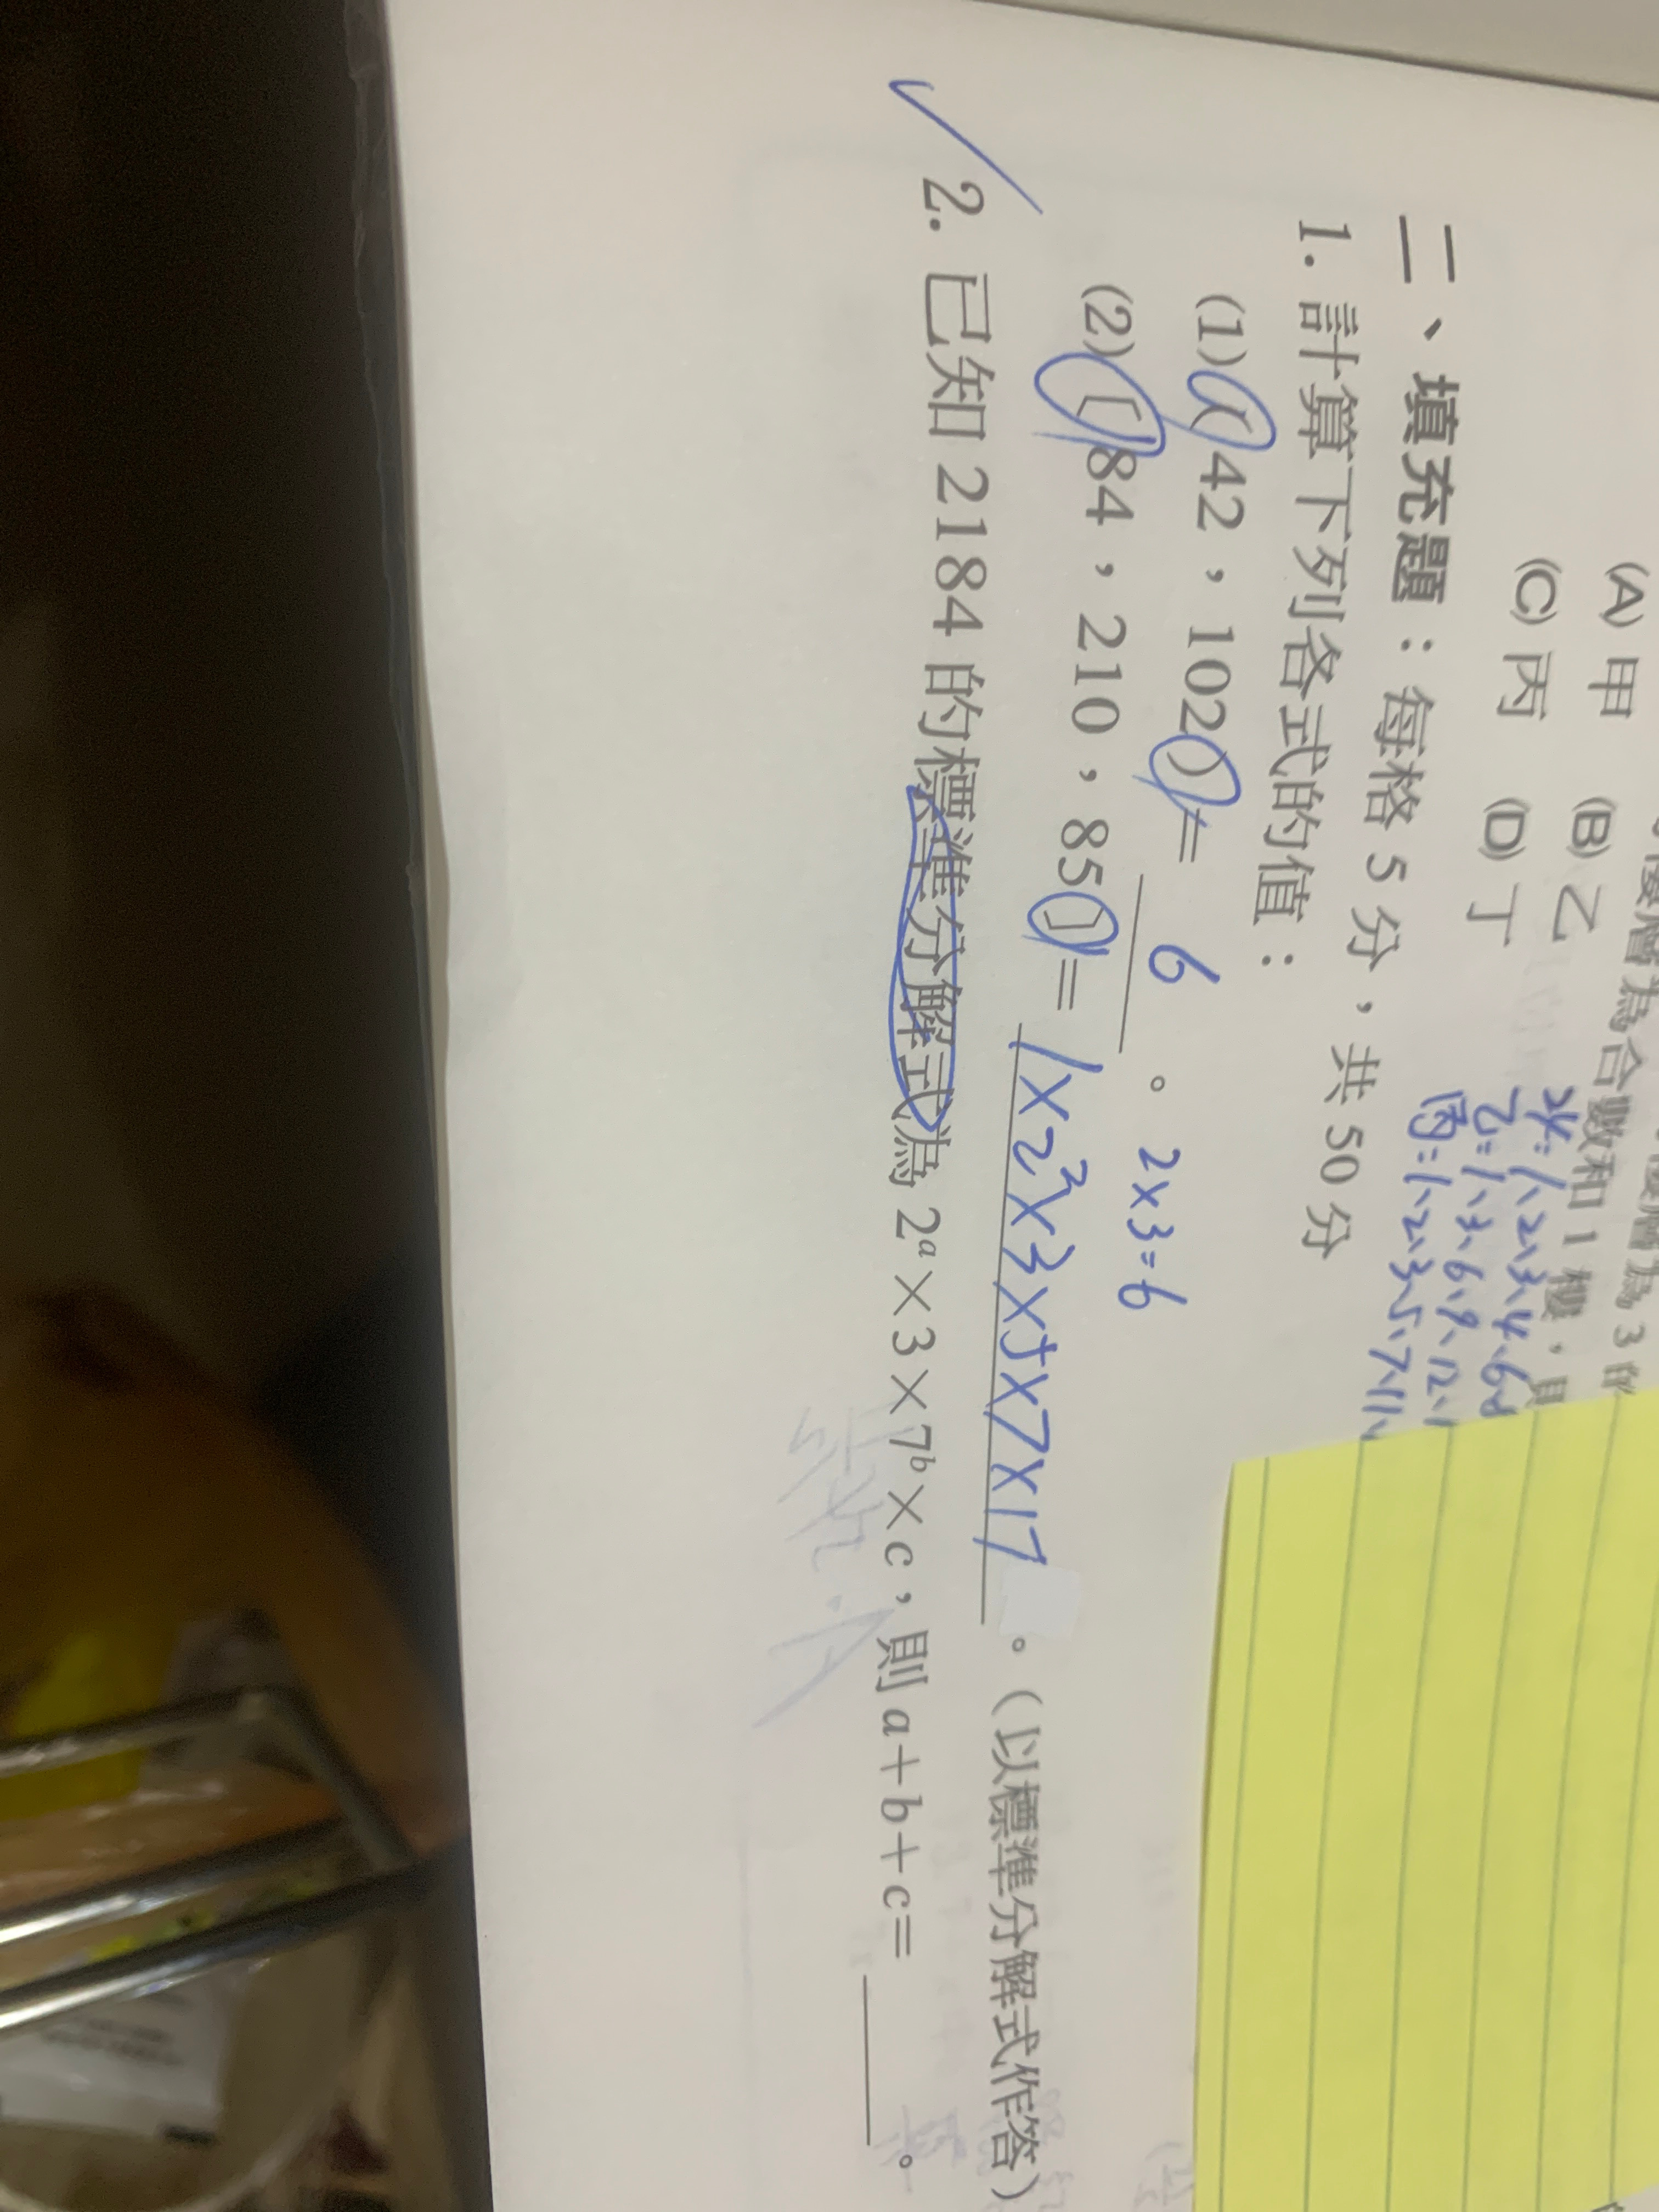 (A) 甲 (B) 乙
(C) 丙 (D) 丁
乙=1、3、6、9、12、
丙=1、2、3、5、7、11、
二、填充題：每格 5 分，共 50 分
1. 計算下列各式的值：
(1) ( 42，102 ) = 6 。 2×3=6
(2) 〔 84，210，85 〕= 1×2²×3×5×7×17 。（以標準分解式作答）
2. 已知 2184 的標準分解式為 2ᵃ×3×7ᵇ×c，則 a+b+c= 。